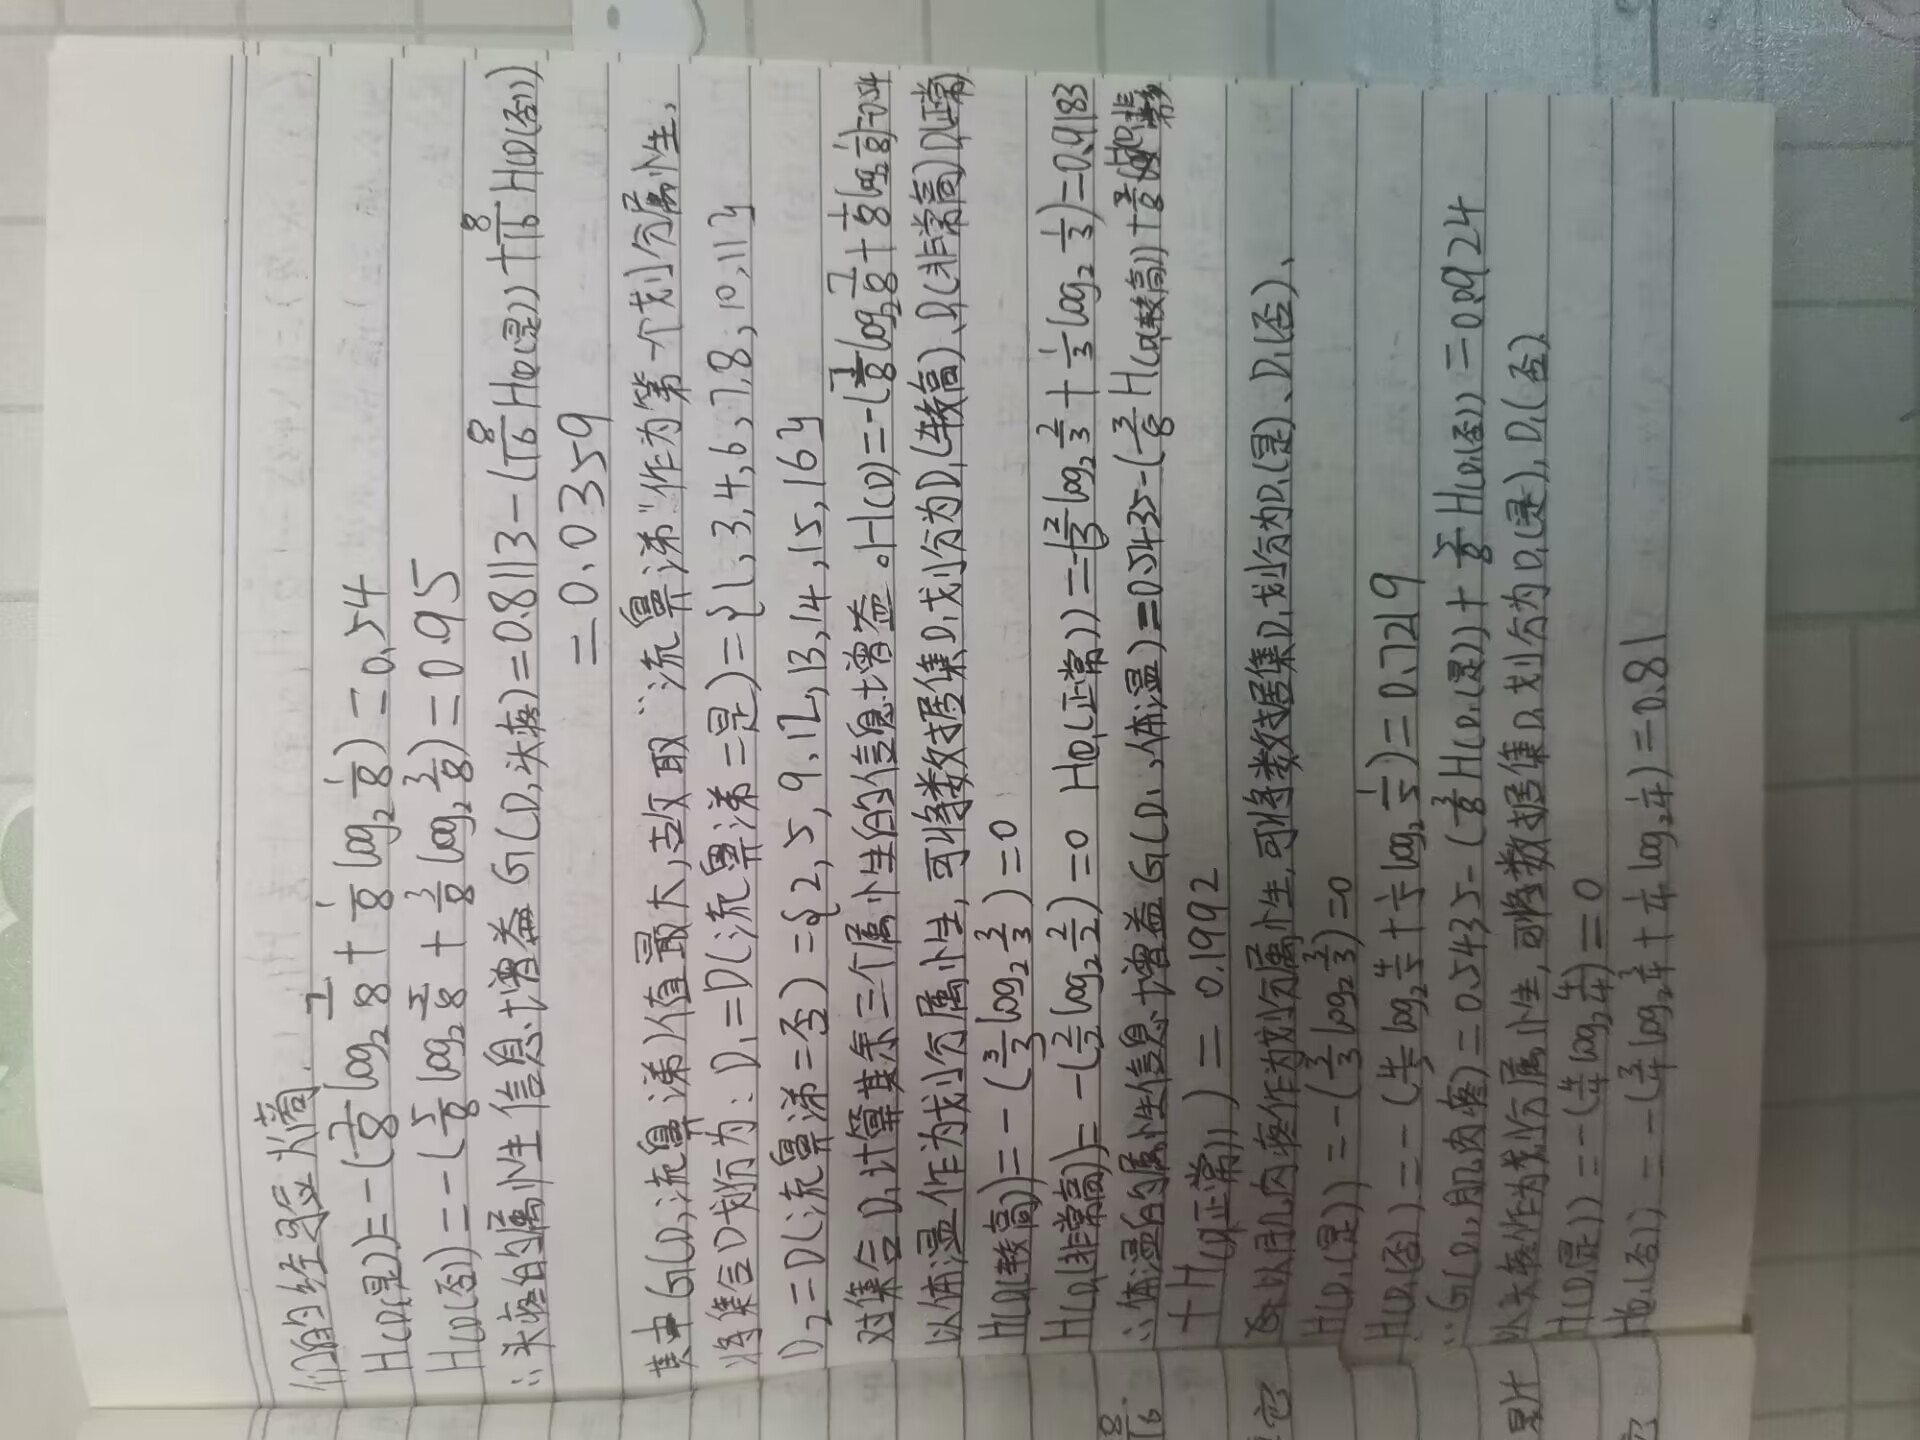 们的经验熵.
H(D(是))=-(7/8 log₂ 7/8 + 1/8 log₂ 1/8)=0.54
H(D(否))=-(5/8 log₂ 5/8 + 3/8 log₂ 3/8)=0.95
∴头疼的属性信息增益G(D,头疼)=0.8113-(8/16 H(D(是))+8/16 H(D(否))
=0.0359
其中G(D,流鼻涕)值最大,故取"流鼻涕"作为第一个划分属性.
将集合D划为:D₁=D(流鼻涕=是)={1,3,4,6,7,8,10,11}
D₂=D(流鼻涕=否)={2,5,9,12,13,14,15,16}
对集合D₁计算其余三个属性的信息增益。H(D)=-(7/8 log₂ 7/8 + 1/8 log₂ 1/8)=0.54
以体温作为划分属性,可将数据集D₁划分为D₁(较高)、D₁(非常高)D₁(正常)
H(D₁(较高))=-(3/3 log₂ 3/3)=0
H(D₁(非常高))=-(2/2 log₂ 2/2)=0 H(D₁(正常))=-(2/3 log₂ 2/3 + 1/3 log₂ 1/3)=0.9183
∴体温的属性信息增益G(D₁,体温)=0.5435-(3/8 H(D₁(较高))+2/8 H(D₁(非常高
+H(D₁(正常)))=0.1992
以肌肉疼作为划分属性,可将数据集D₁划分为D₁(是)、D₁(否)、
H(D₁(是))=-(3/3 log₂ 3/3)=0
H(D₁(否))=-(4/5 log₂ 4/5 + 1/5 log₂ 1/5)=0.7219
∴G(D₁,肌肉疼)=0.5435-(3/8 H(D₁(是))+5/8 H(D₁(否))=0.0924
以头疼作为划分属性,可将数据集D₁划分为D₁(是),D₁(否)
H(D₁(是))=-(4/4 log₂ 4/4)=0
H(D₁(否))=-(3/4 log₂ 3/4 + 1/4 log₂ 1/4)=0.81
8/16.
它